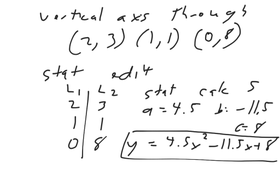 vertical axs through
(2, 3) (1, 1) (0, 8)
stat edit
L1 L2 stat calc 5
2 3 a = 4.5 b: -11.5
1 1 c = 8
0 8 y = 4.5x² - 11.5x + 8